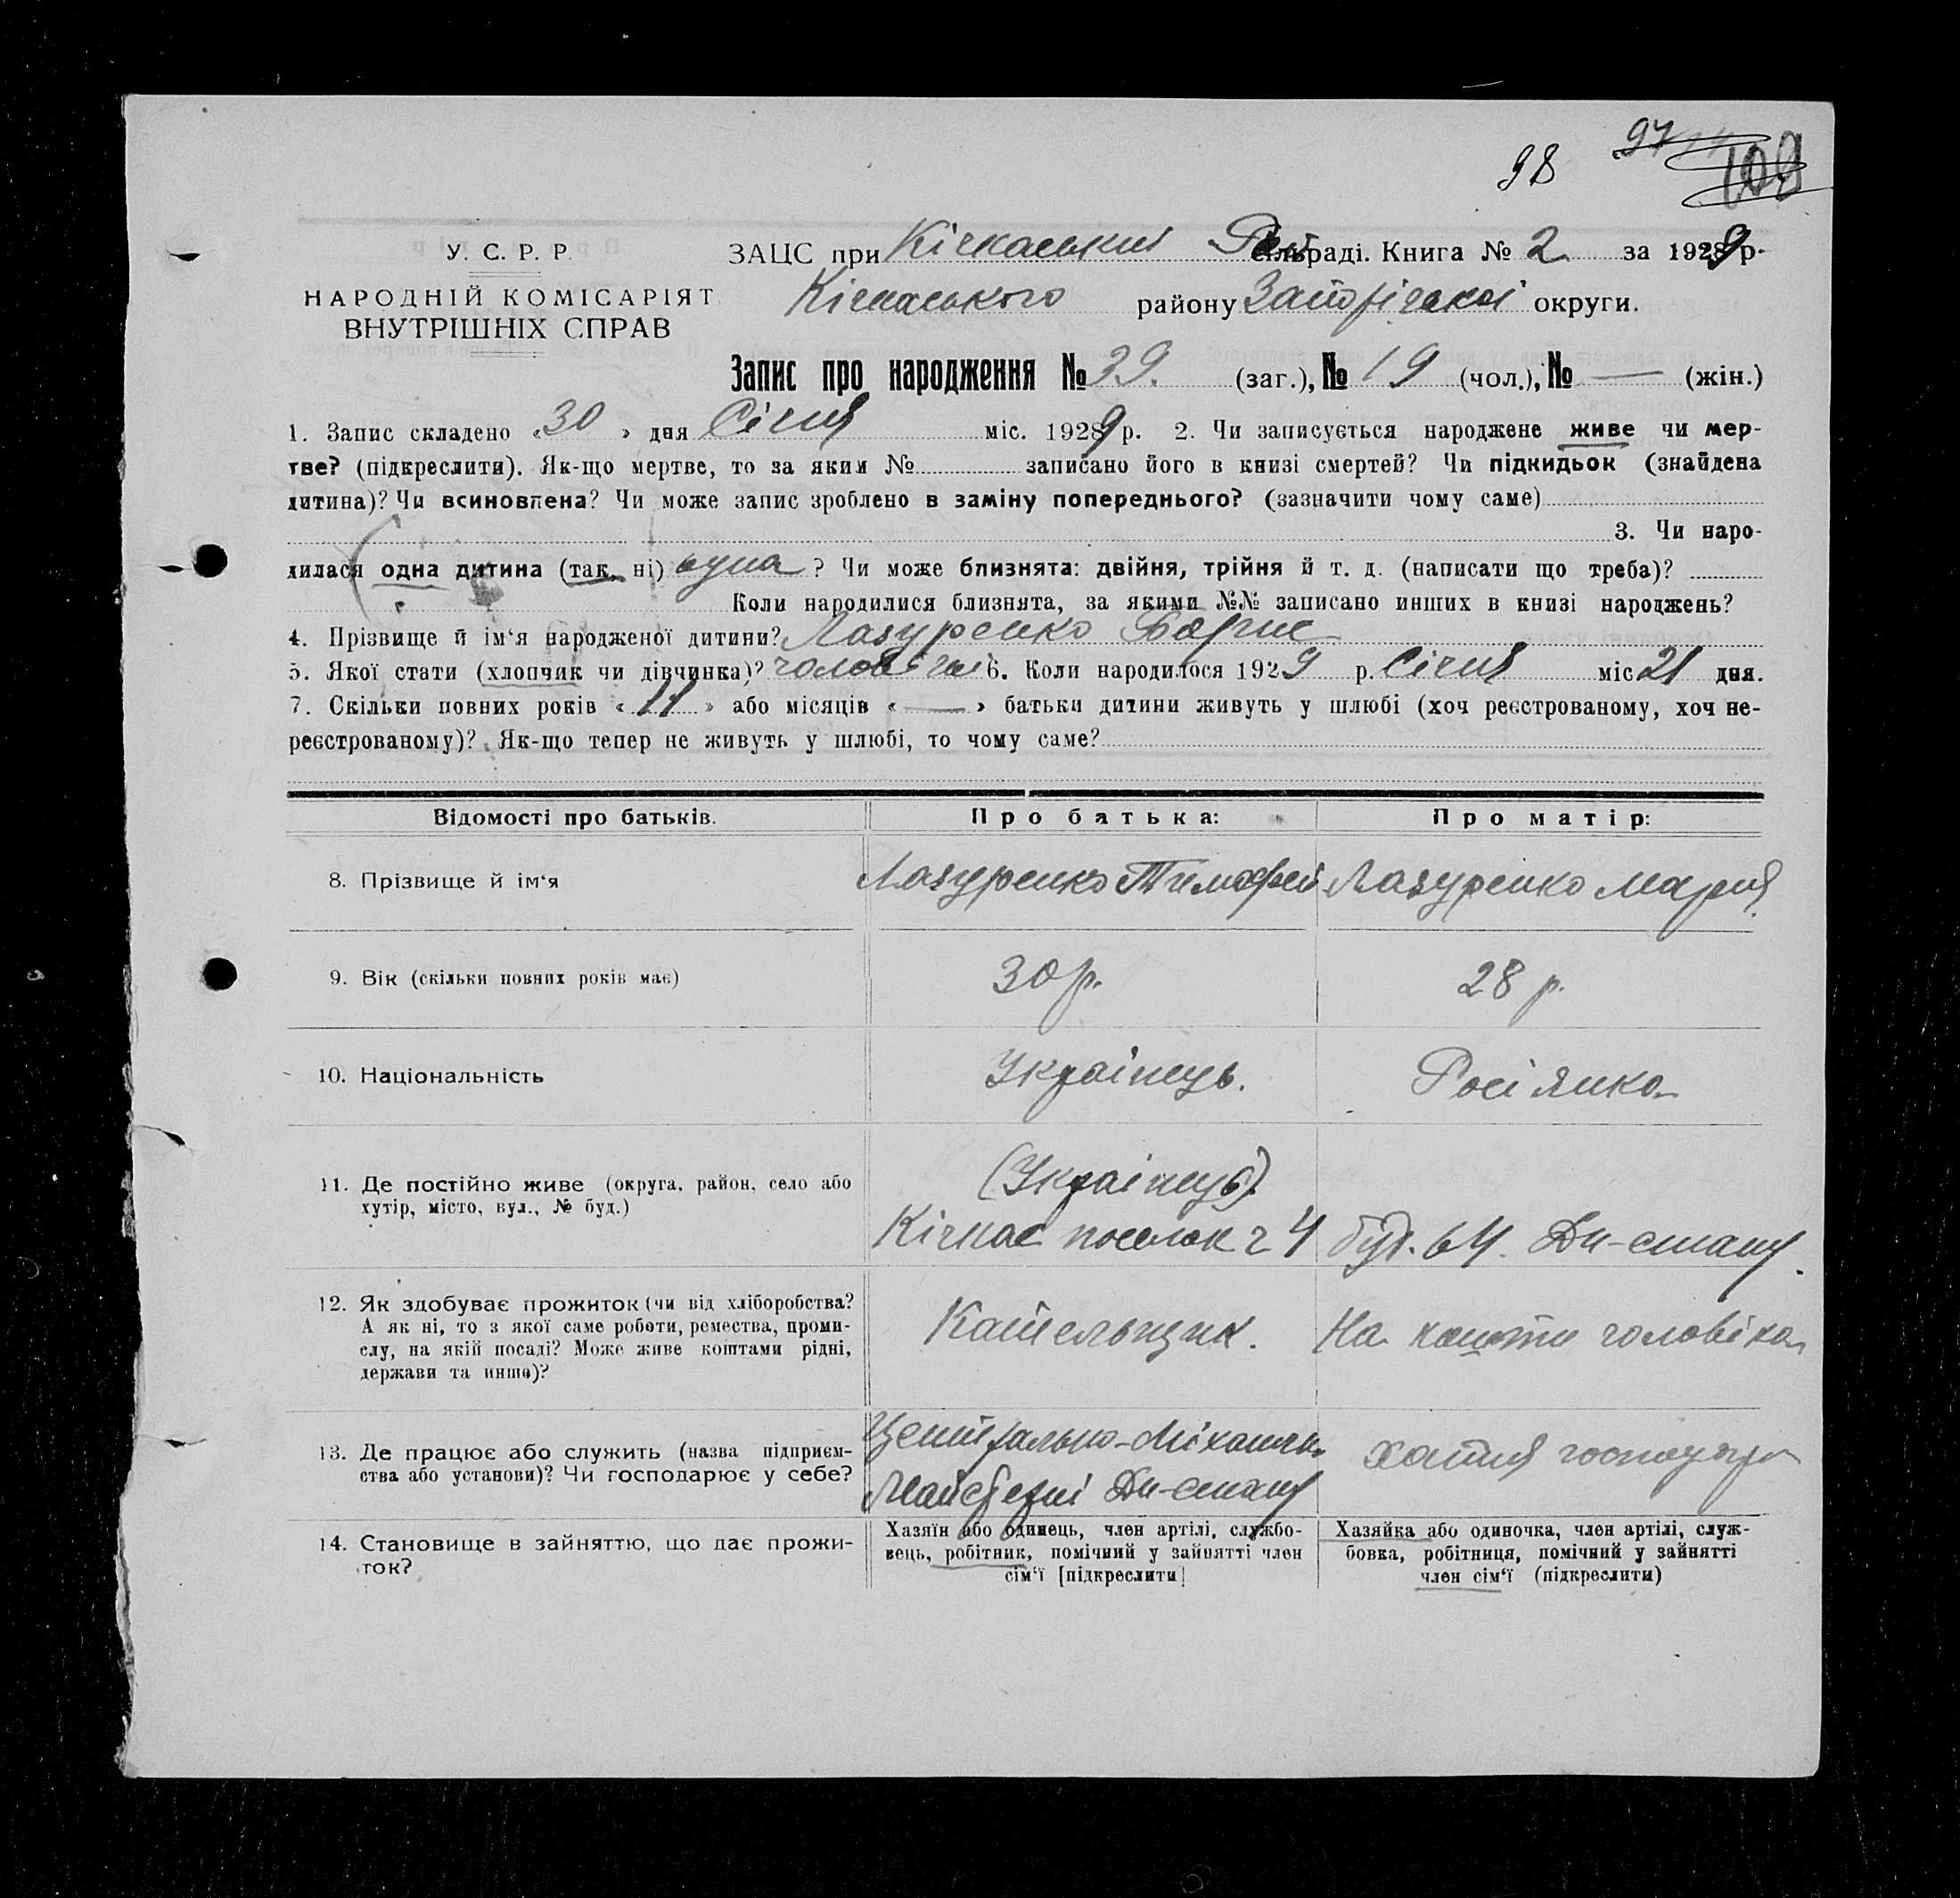 98 97 109
У. С. Р. Р. ЗАЦС при Кічкаський сільраді. Книга № 2 за 1929 р.
НАРОДНІЙ КОМІСАРІЯТ Кічкаського району Запорізької округи.
ВНУТРІШНІХ СПРАВ
Запис про народження № 39. (заг.), № 19 (чол.), № — (жін.)
1. Запис складено «30» дня Січня міс. 1929 р. 2. Чи записується народжене живе чи мер-
тве? (підкреслити). Як-що мертве, то за яким № записано його в книзі смертей? Чи підкидьок (знайдена
дитина)? Чи всиновлена? Чи може запис зроблено в заміну попереднього? (зазначити чому саме)
3. Чи наро-
дилася одна дитина (так, ні) одна ? Чи може близнята: двійня, трійня й т. д. (написати що треба)?
Коли народилися близнята, за якими №№ записано инших в книзі народжень?
4. Прізвище й ім‘я народженої дитини? Лазуренко Борис
5. Якої стати (хлопчик чи дівчинка)? чоловіча 6. Коли народилося 1929 р. Січня міс 21 дня.
7. Скільки повних років «11» або місяців «—» батьки дитини живуть у шлюбі (хоч реєстрованому, хоч не-
реєстрованому)? Як-що тепер не живуть у шлюбі, то чому саме?
Відомості про батьків. Про батька: Про матір:
8. Прізвище й ім‘я Лазуренко Тимофей Лазуренко Мария
9. Вік (скільки повних років має) 30 р. 28 р.
10. Національність Українець. Росіянка
(Українець).
11. Де постійно живе (округа, район, село або
хутір, місто, вул., № буд.) Кічкас поселок 2 4 буд. 64. Дн-стану.
12. Як здобуває прожиток (чи від хліборобства?
А як ні, то з якої саме роботи, ремества, проми-
слу, на якій посаді? Може живе коштами рідні,
держави та инше)? Кательщик. На кошти чоловіка
13. Де працює або служить (назва підприєм-
ства або установи)? Чи господарює у себе? Центрально-Міханичн.
Майстерні Дн-стану хатня господар
14. Становище в зайняттю, що дає прожи-
ток?
Хазяїн або одинець, член артілі, службо-
вець, робітник, помічний у зайнятті член
сім‘ї [підкреслити]
Хазяйка або одиночка, член артілі, служ-
бовка, робітниця, помічний у зайнятті
член сім‘ї (підкреслити)